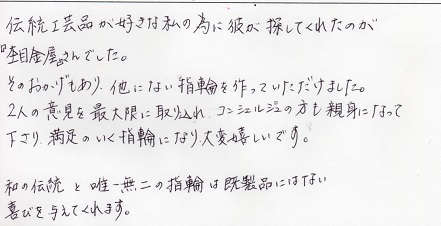 伝統工芸品が好きな私の為に彼が探してくれたのが
『杢目金屋』さんでした。
そのおかげもあり、他にない指輪を作っていただけました。
2人の意見を最大限に取り入れ、コンシェルジュの方も親身になって
下さり、満足のいく指輪になり大変嬉しいです。
和の伝統と唯一無二の指輪は既製品にはない
喜びを与えてくれます。